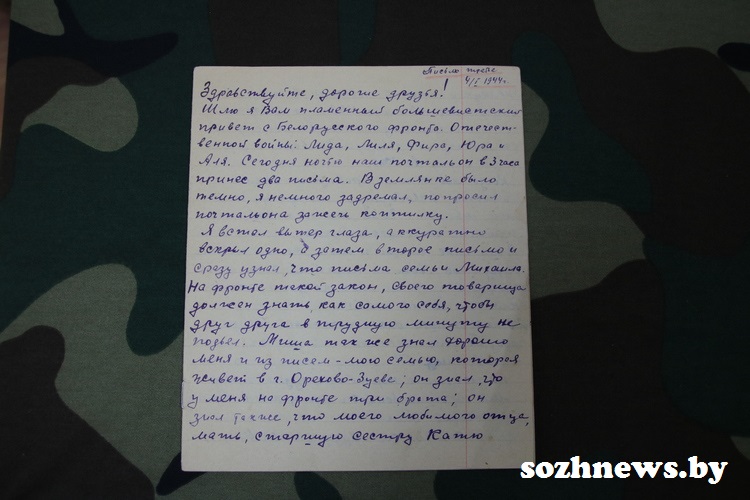 Письмо третье
4/I 1944г.
Здравствуйте, дорогие друзья!
Шлю я Вам пламенный большевистский
привет с Белорусского фронта Отечест-
венной войны: Лида, Лиля, Фира, Юра и
Аля. Сегодня ночью наш почтальон в 3 часа
принес два письма. В землянке было
темно, я немного задремал, попросил
почтальона зажечь коптилку.
Я встал вытер глаза, аккуратно
вскрыл одно, а затем второе письмо и
сразу узнал, что письма семьи Михаила.
На фронте такой закон, своего товарища
должен знать, как самого себя, чтобы
друг друга в трудную минуту не
подвел. Миша так же знал хорошо
меня и из писем - мою семью, которая
живет в г. Орехово-Зуеве; он знал, что
у меня на фронте три брата; он
знал также, что моего любимого отца,
мать, старшую сестру Катю
sozhnews.by